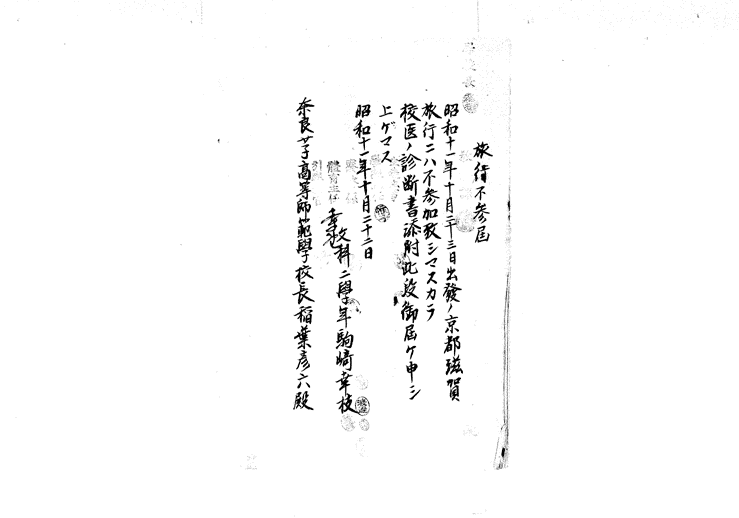 旅行不参届
昭和十一年十月二十三日出發ノ京都滋賀
旅行ニハ不参加致シマスカラ
校医ノ診断書添附此段御届ケ申シ
上ゲマス
昭和十一年十月二十二日
文科二學年駒﨑幸枝
奈良女子高等師範學校長稲葉彦六殿
體育主任